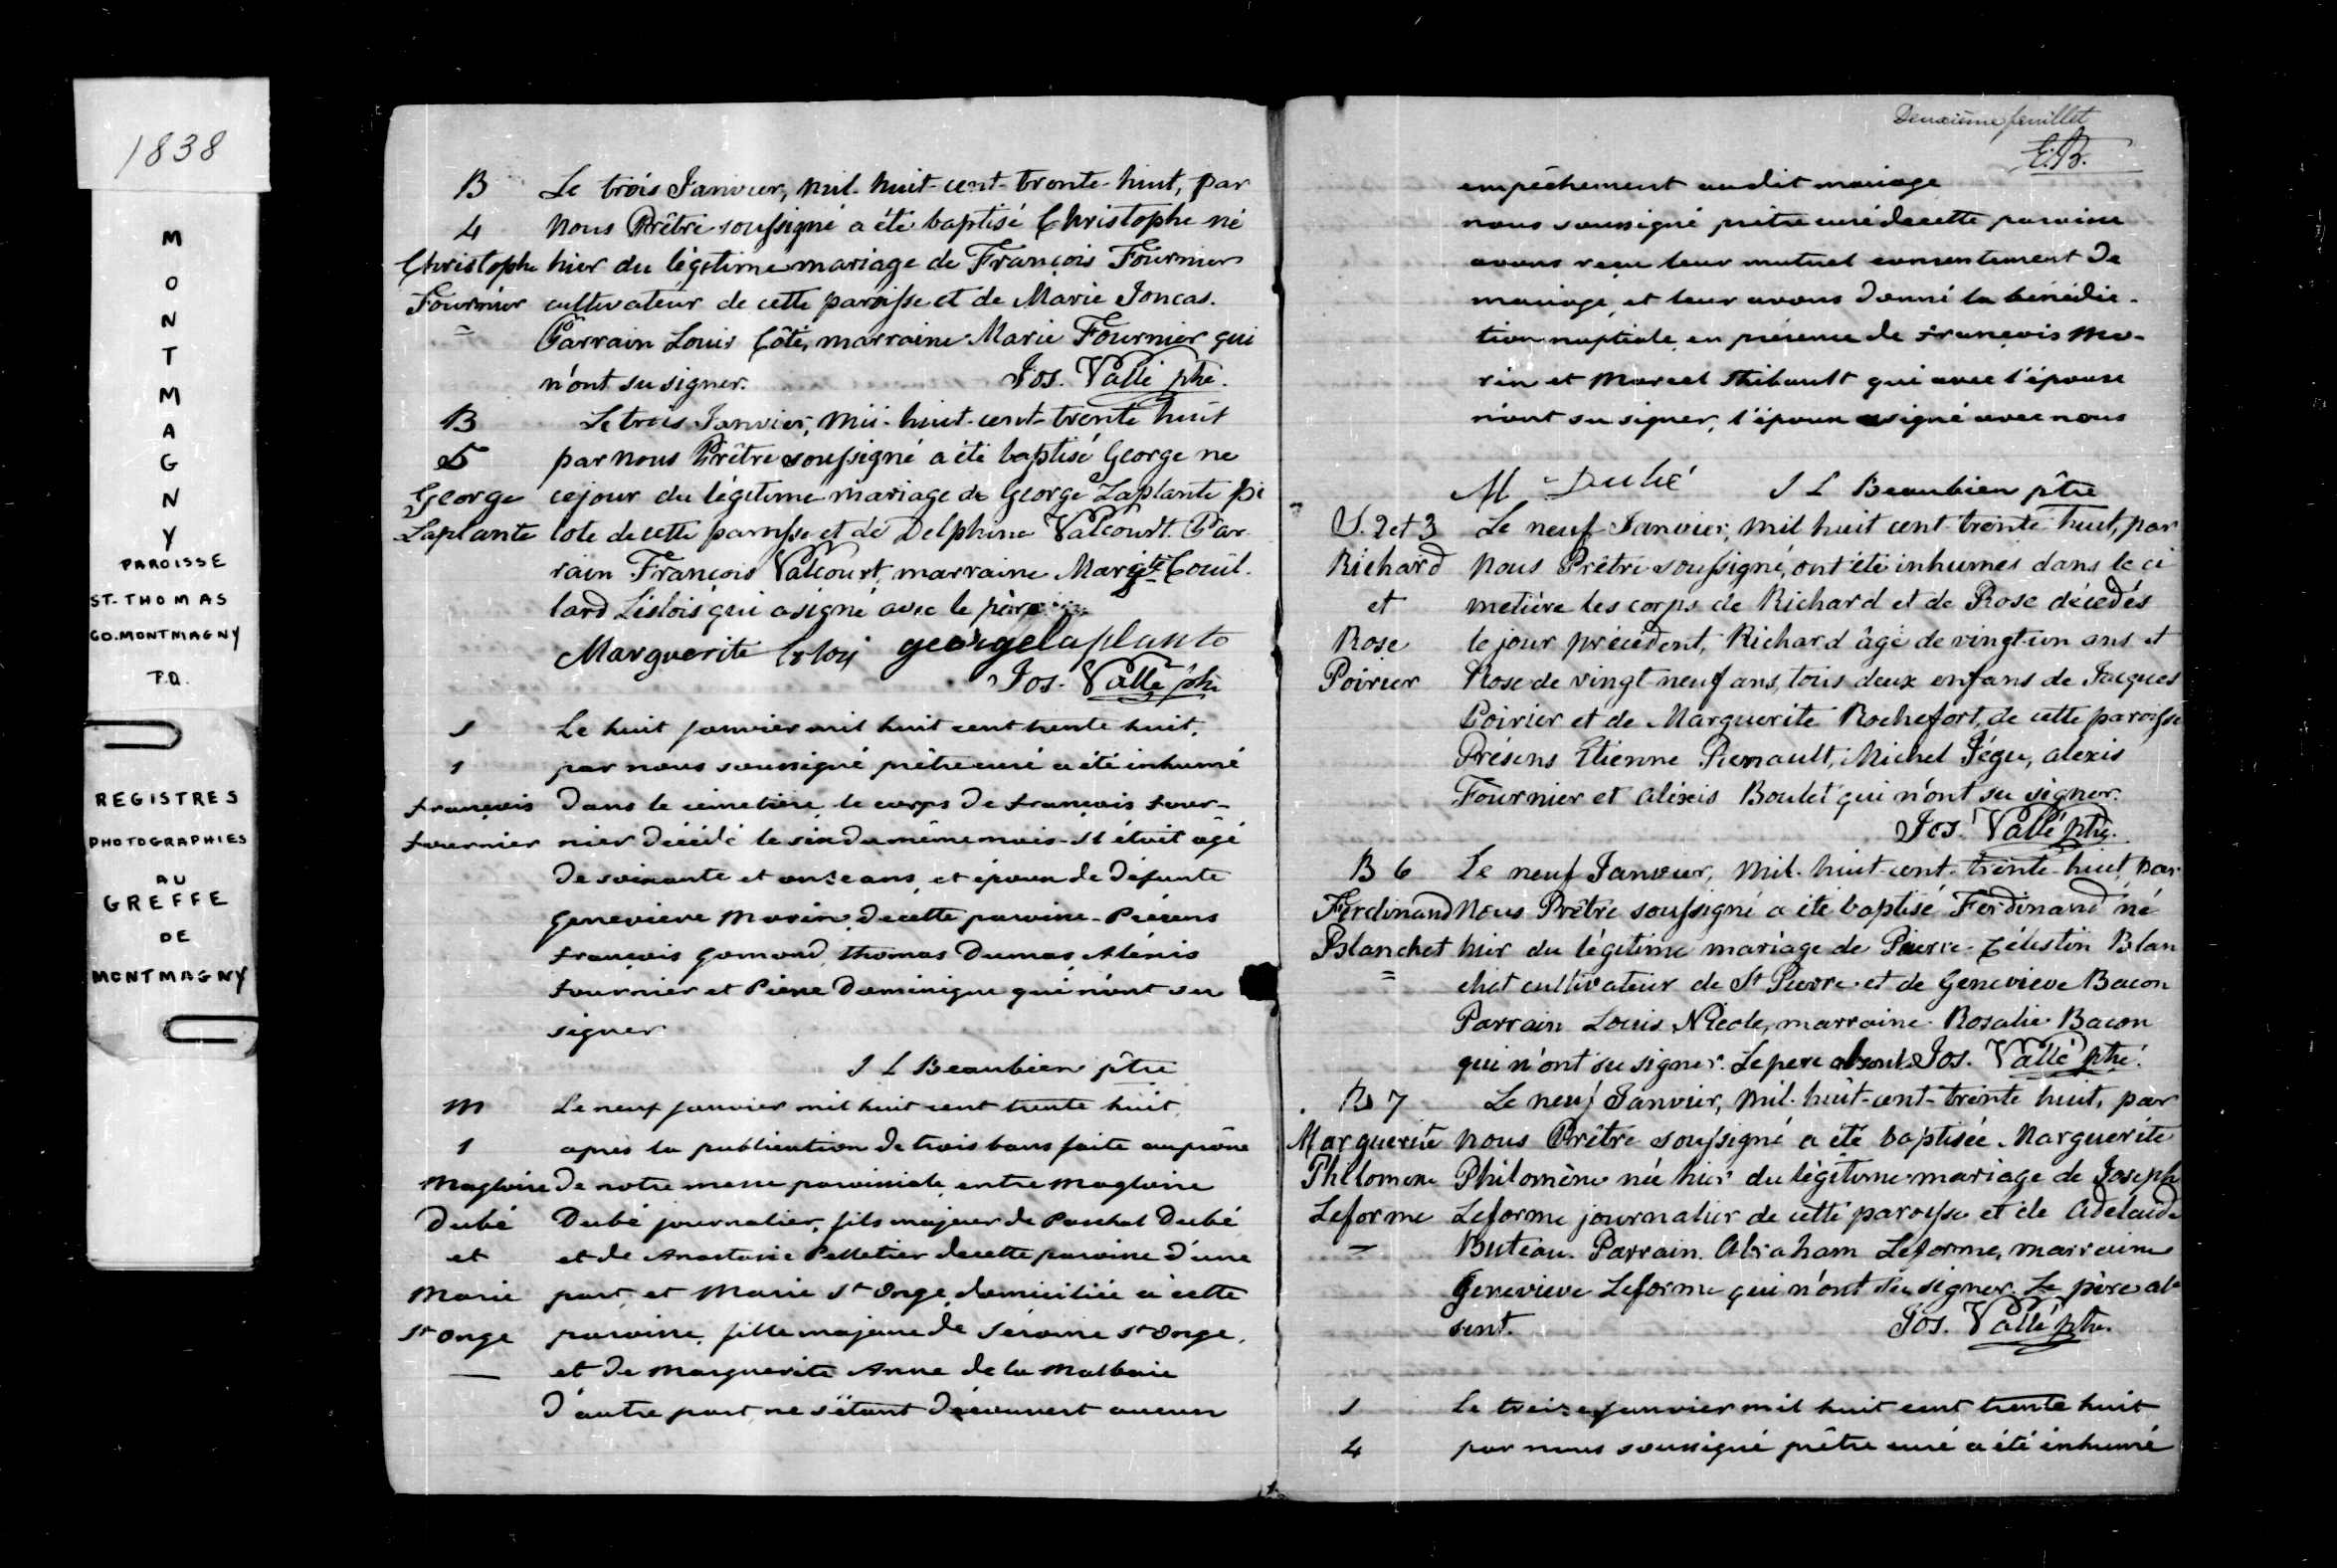 1838
MONTMAGNY
PAROISSE
ST-THOMAS
CO.MONTMAGNY
P.Q.
REGISTRES
PHOTOGRAPHIES
AU
GREFFE
DE
MONTMAGNY
B Le trois Janvier, mil-huit-cent-trente-huit, par
4 Nous Prêtre soussigné a été baptisé Christophe né
Christophe hier du légitime mariage de François Fournier
Fournier cultivateur de cette paroisse et de Marie Joncas.
= Parrain Louis Côté, marraine Marie Fournier qui
n'ont su signer. Jos. Vallé ptre.
B Le trois Janvier, mil-huit-cent-trente huit
5 par nous Prêtre soussigné a été baptisé George né
George ce jour du légitime mariage de George Laplante pi
Laplante lote de cette paroisse et de Delphine Valcourt. Par
rain François Valcourt, marraine Margte Couil
lard Lislois qui a signé avec le père
Marguerite Isloy george laplante
Jos. Vallé ptre
S Le huit janvier mil huit cent trente huit,
1 par nous soussigné prêtre curé a été inhumé
François dans le cimetière, le corps de François Four-
Fournier nier décédé le six du même mois. Il était âgé
de soixante et onze ans, et époux de défunte
Genevieve Morin, de cette paroisse. Présens
François Gamond, Thomas Dumas, Alexis
Fournier et Pierre Dominique qui n'ont su
signer
J L Beaubien ptre
M Le neuf janvier mil huit cent trente huit,
1 après la publication de trois bans faite au prône
Magloire de notre messe paroissiale, entre Magloire
Dubé Dubé journalier, fils majeur de Paschal Dubé
et et de Anastasie Pelletier de cette paroisse d'une
Marie part, et Marie St Onge, domiciliée à cette
St Onge paroisse, fille majeure de Jérome St Onge,
— et de Marguerite Anne de la Malbaie
d'autre part, ne s'étant découvert aucun
Deuxième feuillet
E.B.
empêchement au dit mariage
nous soussigné prêtre curé de cette paroisse
avons reçu leur mutuel consentement de
mariage, et leur avons donné la bénédic-
tion nuptiale, en présence de François Mo-
rin et Marcel Thibault qui avec l'épouse
n'ont su signer, l'époux a signé avec nous
M Dubé J L Beaubien ptre
S. 2 et 3 Le neuf Janvier, mil huit cent-trente-huit, par
Richard Nous Prêtre soussigné, ont été inhumés dans le ci
et metière les corps de Richard et de Rose décédés
Rose le jour précédent, Richard âgé de vingt-un ans et
Poirier Rose de vingt neuf ans, tous deux enfans de Jacques
Poirier et de Marguerite Rochefort, de cette paroisse
Présens Etienne Renault, Michel Fégu, Alexis
Fournier et Alexis Boulet qui n'ont su signer.
Jos. Vallé ptre.
B 6 Le neuf Janvier, mil-huit-cent-trente-huit, par
Ferdinand Nous Prêtre soussigné a été baptisé Ferdinand né
Blanchet hier du légitime mariage de Pierre-Célestin Blan
= chet cultivateur de St Pierre et de Genevieve Bacon
Parrain Louis Nicole, marraine Rosalie Bacon
qui n'ont su signer. Le pere absent. Jos. Vallé ptre.
B 7 Le neuf Janvier, mil-huit-cent-trente huit, par
Marguerite Nous Prêtre soussigné a été baptisée Marguerite
Philomene Philomène née hier du légitime mariage de Joseph
Leforme Leforme journalier de cette paroisse et de Adelaide
= Buteau. Parrain Abraham Leforme, marraine
Genevieve Leforme qui n'ont su signer. Le père ab
sent. Jos. Vallé ptre.
S Le treize janvier mil huit cent trente huit
4 par nous soussigné prêtre curé a été inhumé